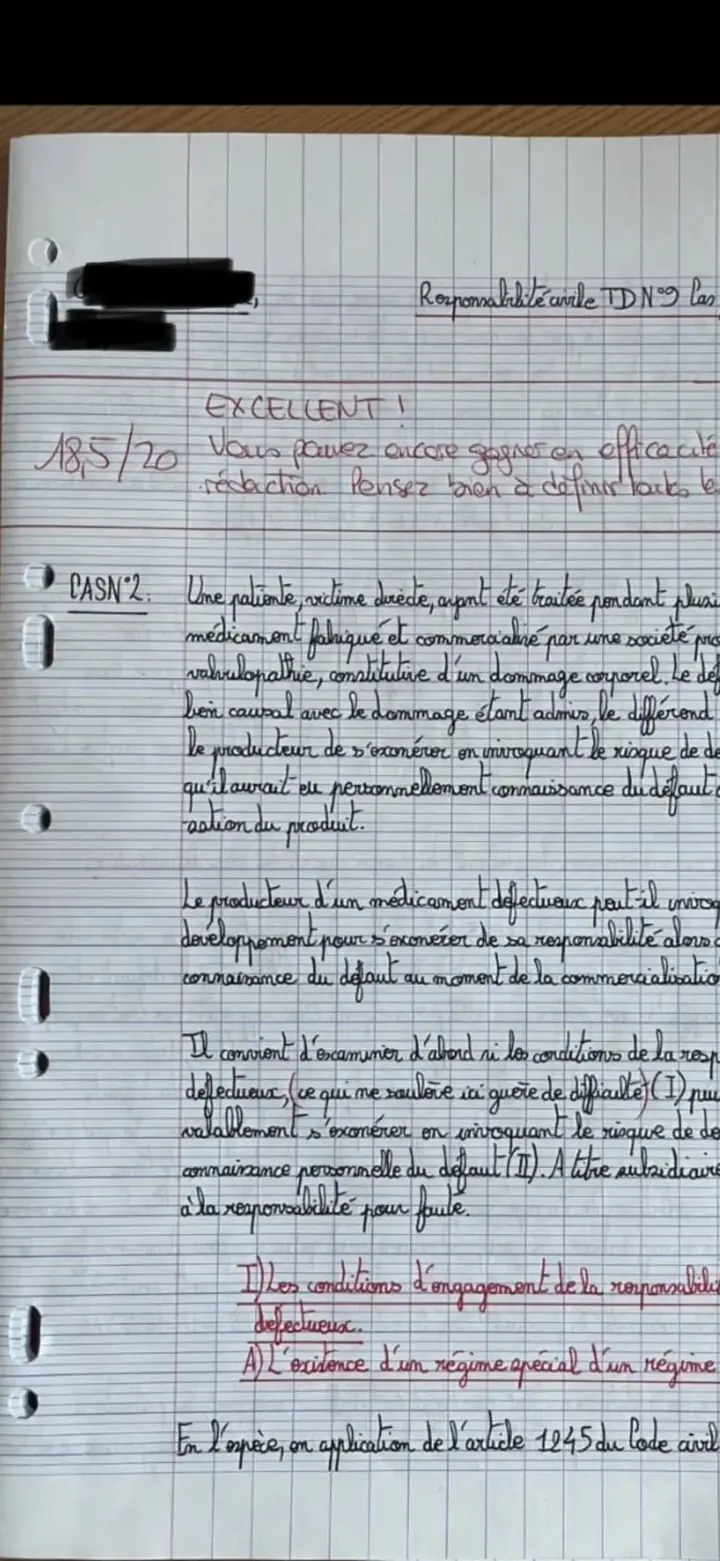 Responsabilité civile TD N°9 Cas
EXCELLENT !
18,5/20 Vous pouvez encore gagner en efficacité
rédaction. Pensez bien à définir toutes le
CAS N°2. Une patiente, victime directe, ayant été traitée pendant plusi
médicament fabriqué et commercialisé par une société pro
valvulopathie, constitutive d'un dommage corporel. Le déf
lien causal avec le dommage étant admis, le différend
le producteur de s'exonérer en invoquant le risque de de
qu'il aurait eu personnellement connaissance du défaut
-sation du produit.
Le producteur d'un médicament défectueux peut-il invoq
développement pour s'exonérer de sa responsabilité alors
connaissance du défaut au moment de la commercialisatio
Il convient d'examiner d'abord si les conditions de la resp
défectueux, (ce qui ne soulève ici guère de difficulté) (I) pui
valablement s'exonérer en invoquant le risque de de
connaissance personnelle du défaut (II). A titre subsidiaire
à la responsabilité pour faute.
I) Les conditions d'engagement de la responsabili
défectueux.
A) L'existence d'un régime spécial d'un régime
En l'espèce, en application de l'article 1245 du Code civil